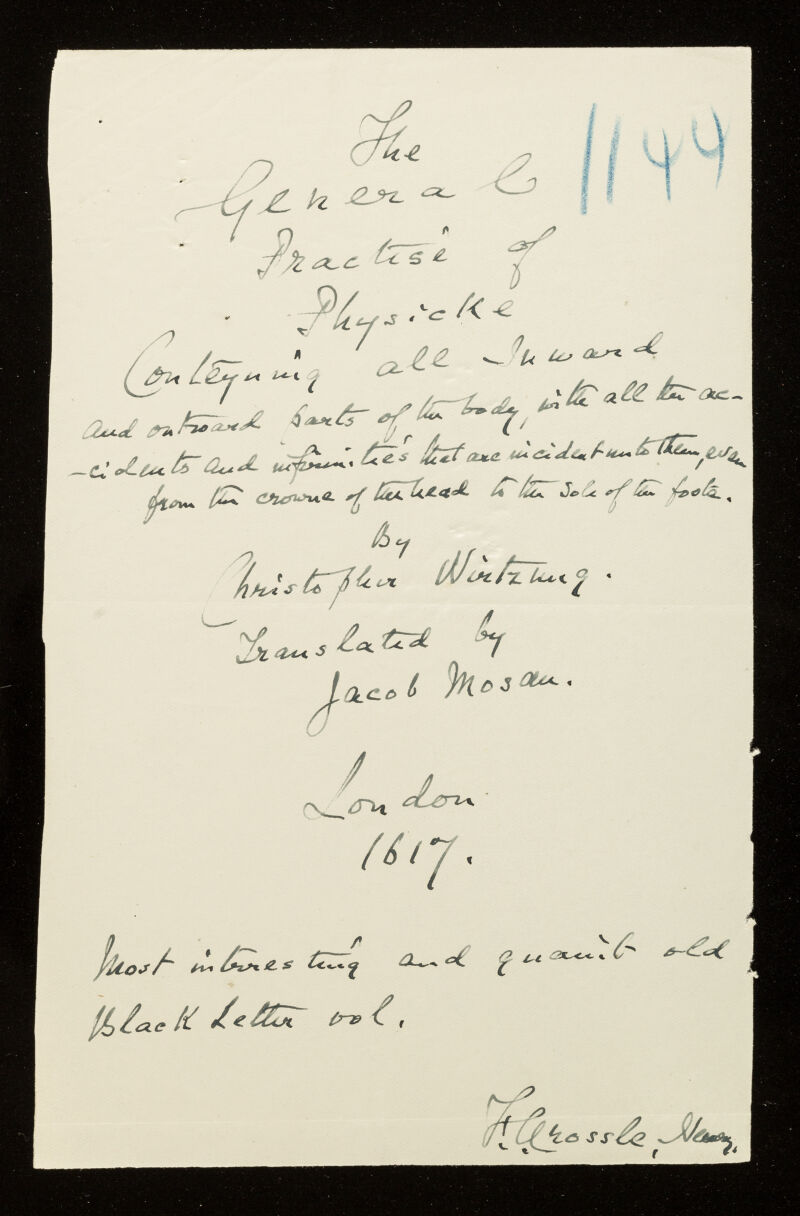 The
1144
General
Practise of
Physicke
Conteynnig all Inward
and outward parts of the body, with all the ac-
-cidents and infirmities that are incident unto them, even
from the crowne of the head to the sole of the foote.
By
Christopher Wirtzung.
Translated by
Jacob Mosan.
London
1617.
Most interesting and quaint old
Black Letter vol.
F. Crossle, Newry.